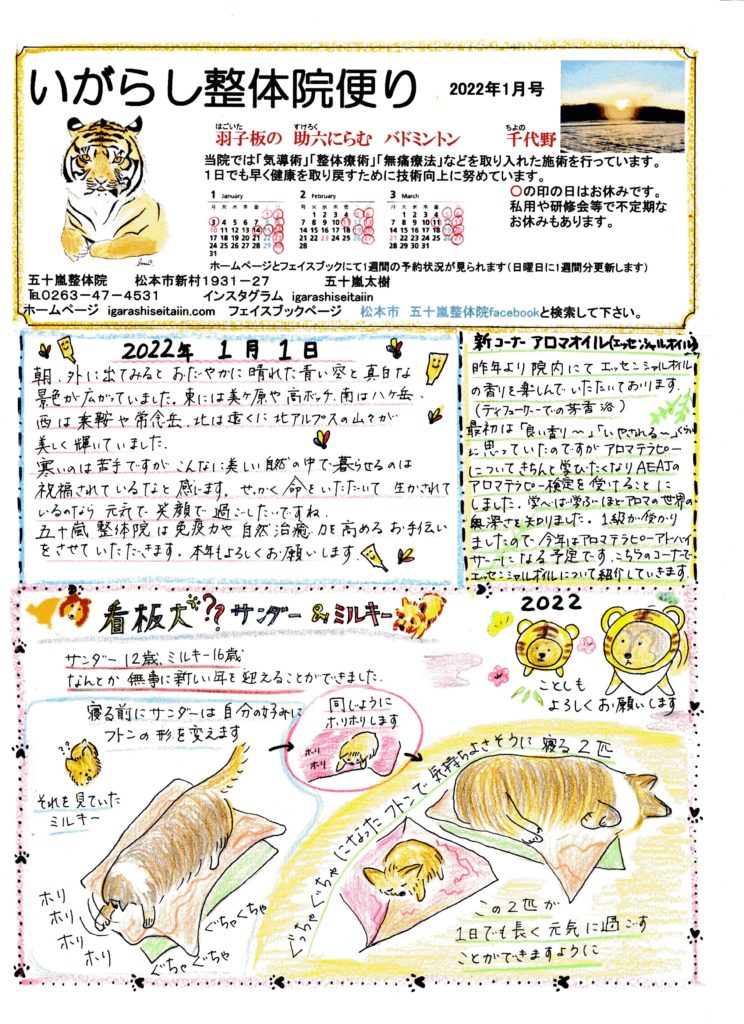 いがらし整体院便り 2022年1月号
はごいた すけろく ちよの
羽子板の 助六にらむ バドミントン 千代野
当院では「気導術」「整体療術」「無痛療法」などを取り入れた施術を行っています。
1日でも早く健康を取り戻すために技術向上に努めています。
1 January
月 火 水 木 金 土 日
1 2
3 4 5 6 7 8 9
10 11 12 13 14 15 16
17 18 19 20 21 22 23
24 25 26 27 28 29 30
31
2 February
月 火 水 木 金 土 日
1 2 3 4 5 6
7 8 9 10 11 12 13
14 15 16 17 18 19 20
21 22 23 24 25 26 27
28
3 March
月 火 水 木 金 土 日
1 2 3 4 5 6
7 8 9 10 11 12 13
14 15 16 17 18 19 20
21 22 23 24 25 26 27
28 29 30 31
○の印の日はお休みです。
私用や研修会等で不定期な
お休みもあります。
ホームページとフェイスブックにて1週間の予約状況が見られます(日曜日に1週間分更新します)
五十嵐整体院 松本市新村1931-27 五十嵐太樹
℡0263-47-4531 インスタグラム igarashiseitaiin
ホームページ igarashiseitaiin.com フェイスブックページ 松本市 五十嵐整体院facebookと検索して下さい。
2022年 1月1日
朝、外に出てみると おだやかに晴れた青い空と真白な
景色が広がっていました。東には美ヶ原や高ボッチ、南は八ヶ岳、
西は乗鞍や常念岳、北は遠くに北アルプスの山々が
美しく輝いていました。
寒いのは苦手ですが こんなに美しい自然の中で暮らせるのは
祝福されているなと感じます。せっかく命をいただいて 生かされて
いるのなら 元気で 笑顔で 過ごしたいですね。
五十嵐 整体院は免疫力や自然治癒力を高めるお手伝い
をさせていただきます。本年もよろしくお願いします。
新コーナー アロマオイル(エッセンシャルオイル)
昨年より 院内にて エッセンシャルオイル
の香りを楽しんでいただいております。
(ディフューザーでの芳香浴)
最初は「良い香り〜」「いやされる〜」くらい
に思っていたのですが アロマテラピー
についてきちんと学びたくなりAEAJの
アロマテラピー検定を受けることに
しました。学べば学ぶほどアロマの世界の
奥深さを知りました。1級が受かり
ましたので今年はアロマテラピーアドバイ
ザーになる予定です。こちらのコーナーで
エッセンシャルオイルについて紹介していきます。
看板犬?? サンダー & ミルキー
サンダー12歳、ミルキー16歳
なんとか 無事に新しい年を迎えることができました。
2022
ことしも
よろしくお願いします
寝る前にサンダーは 自分の好みに
フトンの形を変えます
??
それを見ていた
ミルキー
ホリ
ホリ
ホリ
ホリ
ぐちゃぐちゃ
ぐちゃぐちゃ
同じように
ホリホリします
ホリ
ホリ
ぐっちゃぐちゃになったフトンで気持ちよさそうに寝る2匹
この2匹が
1日でも長く元気に過ごす
ことができますように